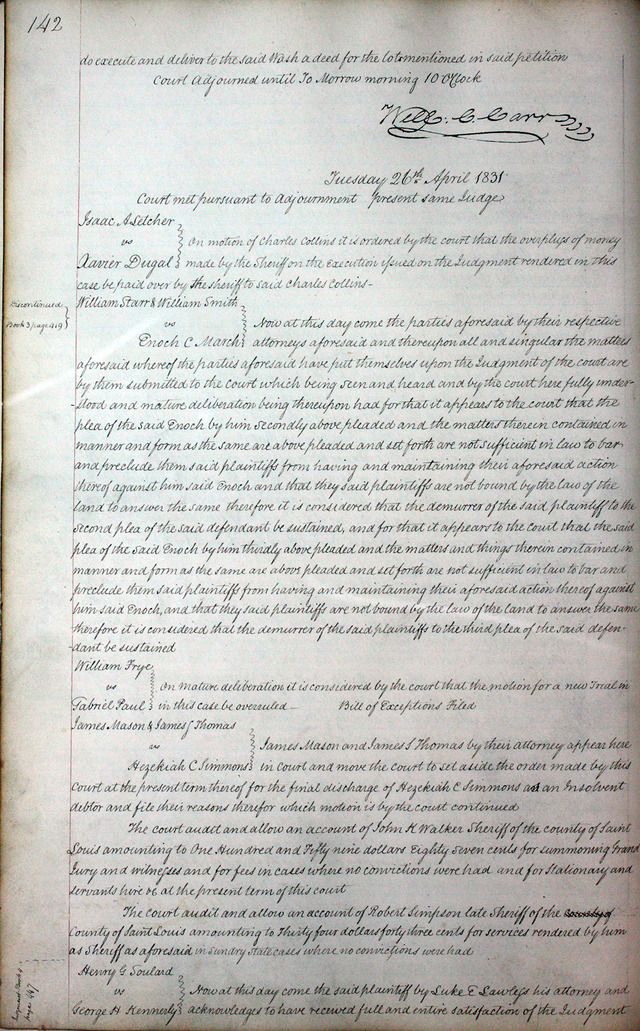 142
do execute and deliver to the said Wash a deed for the lots mentioned in said petition
Court Adjourned until To Morrow morning 10 OClock
Will. C. Carr
Tuesday 26th April 1831
Court met pursuant to Adjournment present same Judge
Isaac A Letcher
vs On motion of Charles Collins it is ordered by the court that the overpluss of money
Xavier Dugal made by the Sheriff on the Execution issued on the Judgment rendered in this
case be paid over by the sheriff to said Charles Collins-
Discontinued
Book 3 page 419
William Starr & William Smith
vs Now at this day come the parties aforesaid by their respective
Enoch C. March attorneys aforesaid and thereupon all and singular the matters
aforesaid whereof the parties aforesaid have put themselves upon the Judgment of the court are
by them submitted to the court which being seen and heard and by the court here fully under-
-stood and mature deliberation being thereupon had for that it appears to the court that the
plea of the said Enoch by him secondly above pleaded and the matters therein contained in
manner and form as the same are above pleaded and set forth are not sufficient in law to bar
and preclude them said plaintiffs from having and maintaining their aforesaid action
thereof against him said Enoch and that they said plaintiffs are not bound by the law of the
land to answer the same therefore it is considered that the demurrer of the said plaintiff to the
second plea of the said defendant be sustained, and for that it appears to the court that the said
plea of the said Enoch by him thirdly above pleaded and the matters and things therein contained in
manner and form as the same are above pleaded and set forth are not sufficient in law to bar and
preclude them said plaintiffs from having and maintaining their aforesaid action thereof against
him said Enoch, and that they said plaintiffs are not bound by the law of the land to answer the same
therefore it is considered that the demurrer of the said plaintiffs to the third plea of the said defen-
dant be sustained
William Frye
vs On mature deliberation it is considered by the court that the motion for a new Trial in
Gabriel Paul in this case be overruled - Bill of Exceptions Filed
James Mason & James S Thomas
vs James Mason and James S Thomas by their attorney appear here
Hezekiah C Simmons in court and move the court to set aside the order made by this
Court at the present term thereof for the final discharge of Hezekiah C Simmons as an Insolvent
debtor and file their reasons therefor which motion is by the court continued
The court audit and allow an account of John K Walker Sheriff of the county of Saint
Louis amounting to One Hundred and Fifty nine dollars Eighty Seven cents for summoning Grand
Jury and witnesses and for fees in cases where no convictions were had and for Stationary and
servants hire &c at the present term of this court
The court audit and allow an account of Robert Simpson late Sheriff of the County of
County of Saint Louis amounting to Thirty four dollars forty three cents for services rendered by him
as Sheriff as aforesaid in Sundry State cases where no convictions were had
Page 497
Henry G Soulard
vs Now at this day come the said plaintiff by Luke E Lawless his attorney and
George H Kennerly acknowledges to have received full and entire satisfaction of the Judgment